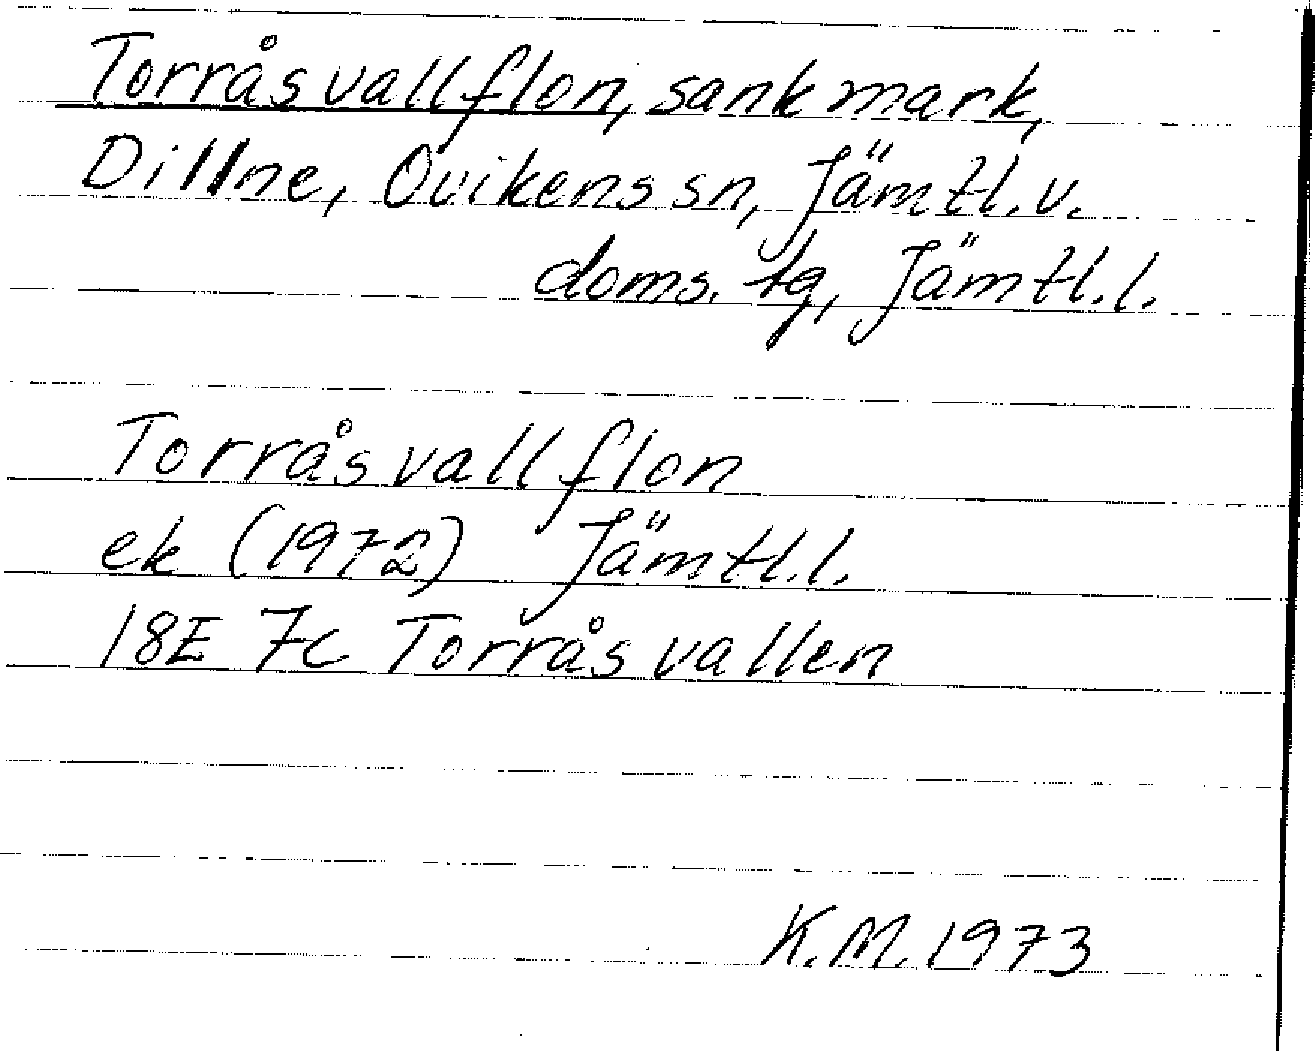 Torråsvallflon, sank mark,
Dillne, Ovikens sn, Jämtl. v.
doms. tg, Jämtl. l.
Torråsvallflon
ek (1972) Jämtl. l.
18E 7c Torråsvallen
K.M. 1973